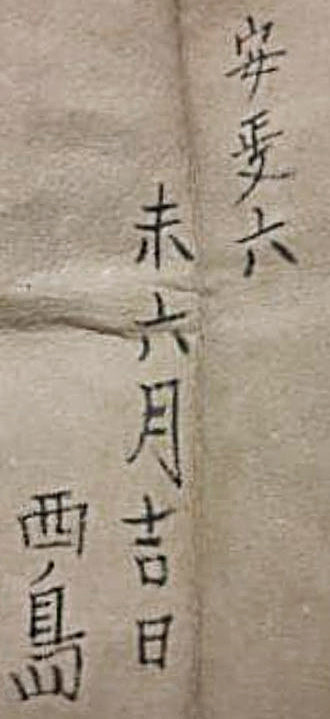 安政六
未六月吉日
西島